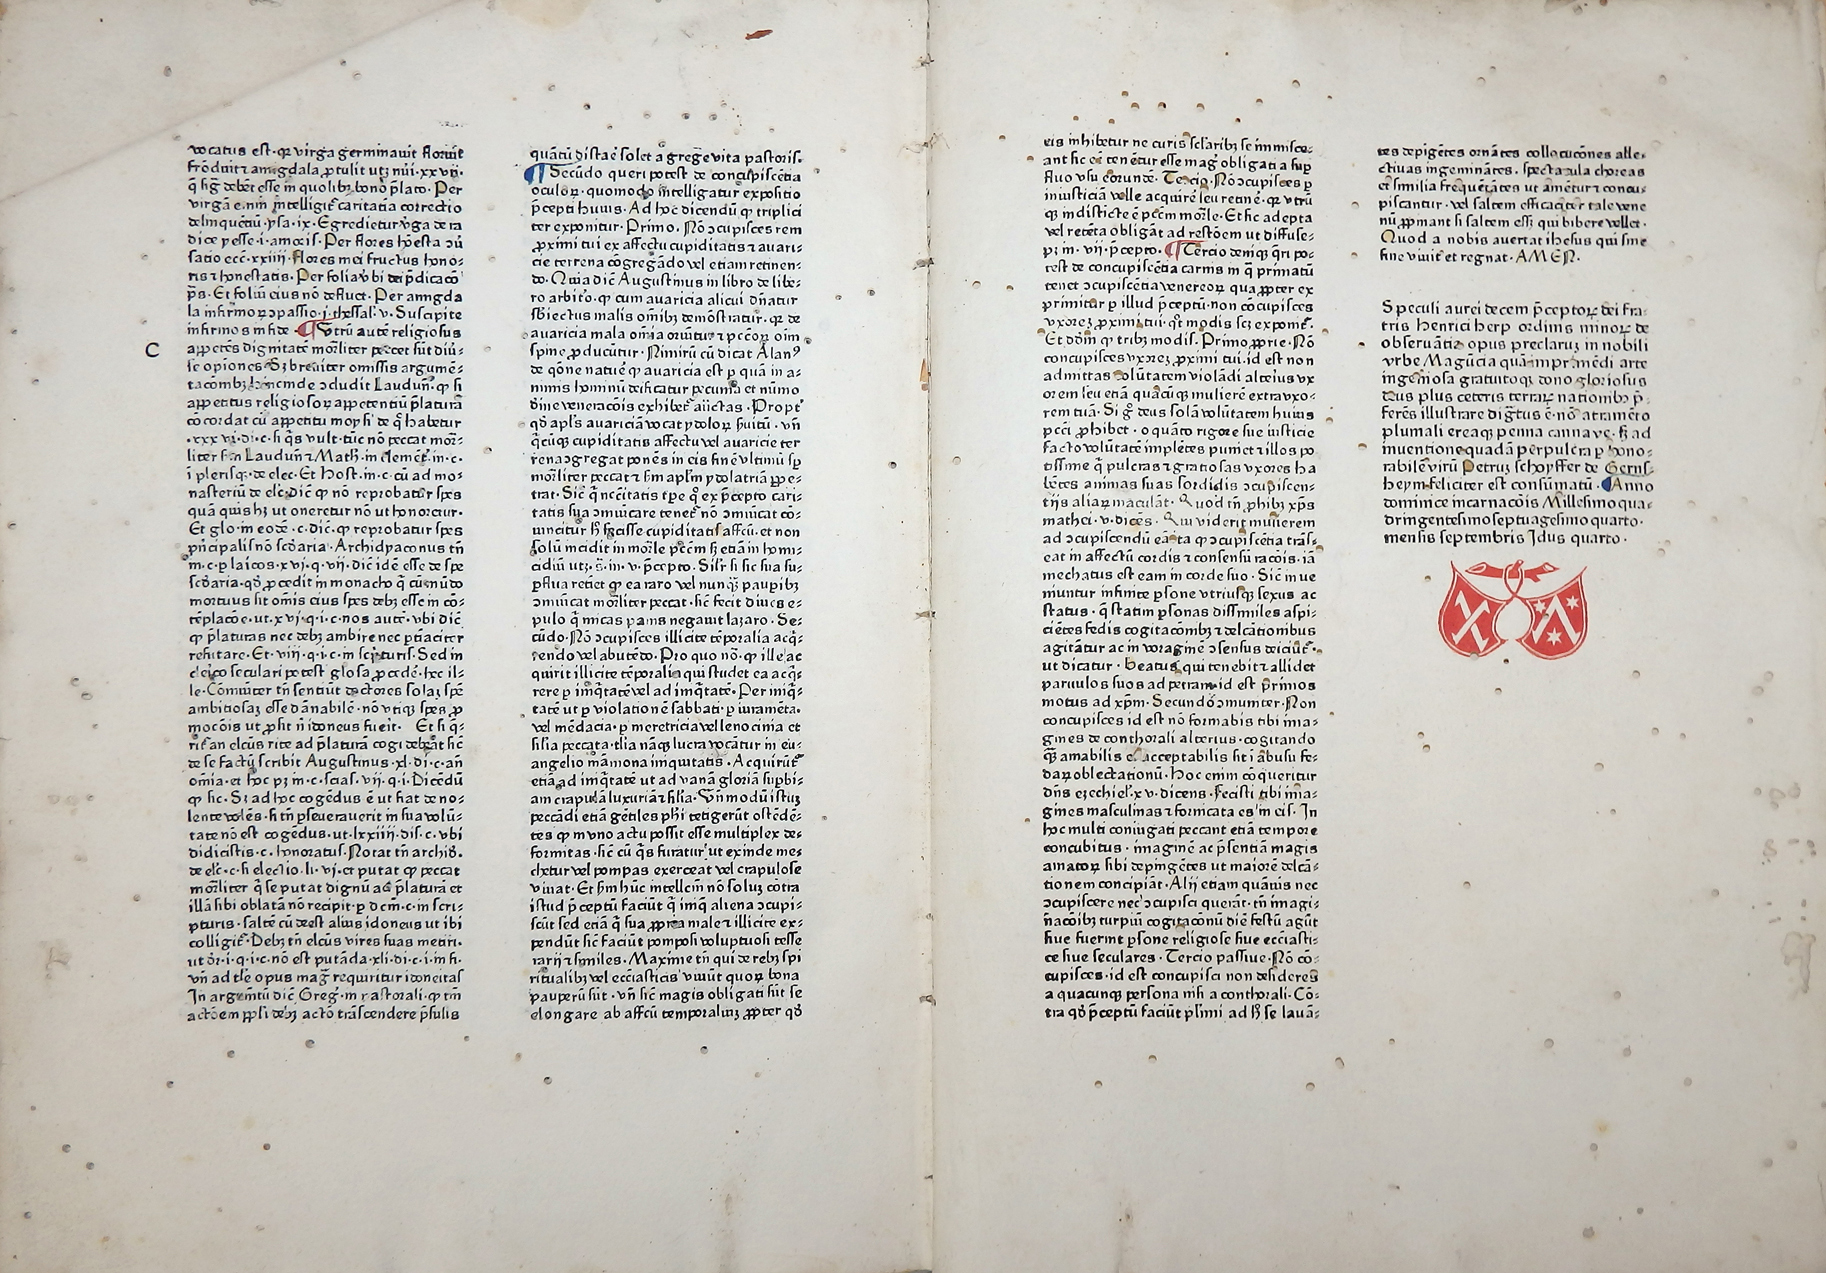 vocatus est· qꝛ virga germinauit floruit
frōduit ⁊ amigdala ꝓtulit
virgā e.nīm intelligit᷑ caritatiua correctio
delinquētiū· ysa· ix· Egredietur v̓ga de ra
dice yesse· i· amoris· Per flores hōesta ɔ̄ū
satio ecc̄· xxiiii· flores mei fructus hono⸗
ris ⁊ honestatis· Per folia v̓bi dei p̄dicacō
p̄s· Et foliū eius nō defluet· Per amigda
la infirmoꝝ ɔpassio· j· thessal· v· Suscipite
infirmos in fide· ¶ Vtrū autē religiosus
C
appetēs dignitatē mor̄liter peccet sūt diū⸗
se opiones· Sʒ breuiter omissis argumē⸗
appetitus religiosoꝝ appetentiū p̄laturā
cōcordat cū appetitu moysi· de q̄ habetur
·xxx vi· di· c· si q̄s vult· tūc nō peccat mor̄⸗
i plerisqꝫ· de elec· Et Host· in· c· cū ad mo⸗
nasteriū de elc̄· dic̄ ꝙ nō reprobatur spes
quā quis hʒ ut oneretur nō ut honoretur·
Et glo· in eodē· c· dic̄· ꝙ reprobatur spes
p̄ncipalis nō sc̄daria· Archidyaconus tn̄
in· c· ꝑ laicos· xvi· q· vii· dic̄ idē esse de spe
sc̄daria· qd̓ ꝓcedit in monacho q̄ cū mūdo
mortuus sit om̄is eius spes debʒ esse in cō⸗
tēplacōe· ut· xvi· q· i· c· nos autē· vbi dic̄
ꝙ p̄laturas nec debʒ ambire nec ꝑtinaciter
refutare· Et· viii· q· i· c· in scripturis· Sed in
clerico seculari potest glosa ꝓcedē· hec il⸗
le· Cōmuiter tn̄ sentiūt doctores solaʒ spē
ambitiosaʒ esse dānabilē· nō vtiqꝫ spes ꝓ
mocōis ut ꝓsit si idoneus fuerit· Et si q̄⸗
de se factū scribit Augustinus· xl· di· c· an̄
om̄ia· et hoc pʒ in· c· scias· vii· q· i· Dicēdū
ꝙ sic· Sʒ ad hoc cogēdus ē ut fiat de no⸗
lente volēs· si tn̄ ꝑseuerauerit in sua volū⸗
tate nō est cogēdus· ut· lxxiiii· dis· c· vbi
didicistis· c· honoratus· Notat tn̄ archid̓·
de elc̄· c· si electio· li· vi· et putat ꝙ peccat
mor̄liter q̄ se putat dignū ad p̄laturā et
illā sibi oblatā nō recipit· ꝑ dc̄m· c· in scri⸗
pturis· saltē cū deest alius idoneus ut ibi
colligit᷑· Debʒ tn̄ elc̄us vires suas metiri·
ut ōr· i· q· i· c· nō est putāda· xli· di· c· i· in fi·
vn̄ ad tl̓e opus mag᷑ requiritur idoneitas
In argm̄tū dic̄ Greg· in pastorali· ꝙ tm̄
actōem ppl̓i debʒ actō trāscendere p̄sulis
quātū distare solet a grege vita pastoris·
¶ Secūdo queri potest de concupiscētia
oculoꝝ· quomodo intelligatur expositio
p̄cepti huius· Ad hoc dicendū ꝙ triplici
ter exponitur· Primo· Nō ɔcupisces rem
ꝓximi tui ex affectu cupiditatis ⁊ auari⸗
cie terrena cōgregādo vel etiam retinen⸗
do· Quia dic̄ Augustinus in libro de libe⸗
ro arbit̓o· ꝙ cum auaricia alicui dn̄atur
sb̓iectus malis om̄ibʒ demōstratur· qꝛ de
auaricia mala om̄ia oriūtur ⁊ pccōꝝ om̄
spine ꝓducūtur· Nimirū cū dicat Alanꝰ
de q̄one nature ꝙ auaricia est ꝑ quā in a⸗
nimis hominū deificatur pecunia et nūmo
diuine veneracōis exhibet᷑ auctas· Propt᷑
qd̓ apl̓s auariciā vocat ydoloꝝ s̓uitū· vn̄
q̄cūqꝫ cupiditatis affectu vel auaricie ter
rena ɔgregat ponēs in eis finē vltimū sꝑ
mor̄liter peccat ⁊ sm̄ apl̓m ydolatriā ꝑpe⸗
trat· Sic̄ q̄ nc̄citatis tꝑe q̄ ex p̄cepto cari⸗
tatis sua ɔmūicare tenet᷑ nō ɔmūicat cō⸗
solū incidit in mor̄le pctm̄ sʒ etiā in homi⸗
cidiū utʒ· s̄· in· v· p̄cepto· Sil̓r si sic sua su⸗
ꝑflua retiet ꝙ ea raro vel nunqꝫ paupibʒ
ɔmūicat mor̄liter peccat· sic̄ fecit diues e⸗
pulo q̄ micas panis negauit lazaro· Se⸗
cūdo· Nō ɔcupisces illicite tēporalia acq̄⸗
rendo vel abutēdo· Pro quo nō· ꝙ ille ac
quirit illicite tēporalia qui studet ea acq̄⸗
rere ꝑ iniq̄tatē vel ad iniq̄tatē· Per iniq̄⸗
tatē ut ꝑ violationē sabbati· ꝑ iuramēta·
vel mēdacia· ꝑ meretricia vel lenocinia et
sil̓ia peccata· tl̓ia nāqꝫ lucra vocātur in eu⸗
angelio māmona iniquitatis· Acquirūt᷑
etiā ad iniq̄tatē ut ad vanā gloriā suꝑbi⸗
am crapulā luxuriā ⁊ sil̓ia· Vn̄ modū istuʒ
peccādi etiā gētiles phi̓ tetigerūt ostēdē⸗
tes ꝙ in vno actu possit esse multiplex de⸗
formitas· sic̄ cū q̄s furatur ut exinde me⸗
chetur vel pompas exerceat vel crapulose
viuat· Et sm̄ hūc intellcm̄ nō soluʒ cōtra
istud p̄ceptū faciūt q̄ iniq̄ aliena ɔcupi⸗
scūt sed etiā q̄ sua ꝓpria male ⁊ illicite ex⸗
pendūt sic̄ faciūt pomposi voluptuosi tesse
rarij ⁊ similes· Maxime tn̄ qui de rebʒ spi
ritualibʒ vel eccl̓iasticis viuūt quoꝝ bona
pauperū sūt· vn̄ sic̄ magis obligati sūt se
elongare ab affcū temporaliuʒ ꝓpter qd̓
eis inhibetur ne curis sc̄laribʒ se immisce⸗
ant sic et tenētur esse mag᷑ obligati a suꝑ
fluo vsu eorundē· Tercio· Nō ɔcupisces ꝑ
iniusticiā velle acquirē seu retinē· qꝛ vtrū
qꝫ indisticte ē pctm̄ mor̄le· Et sic adepta
vel retēta obligāt ad rest̄oem ut diffuse⸗
pʒ in· vii· p̄cepto· ¶ Tercio deniqꝫ q̄ri po⸗
test de concupiscētia carnis in q̄ primatū
tenet ɔcupiscētia venereoꝝ qua ꝓpter ex
primitur ꝑ illud p̄ceptū· non cōcupisces
vxoreʒ ꝓximi tui· qͦt modis scʒ exponit᷑·
Et dōm̄ ꝙ tribʒ modis· Primo ꝓprie· Nō
concupisces vxoreʒ ꝓximi tui· id est non
admittas volūtatem violādi alterius vx
orem seu etiā quācūqꝫ mulierē extra vxo⸗
rem tuā· Si g᷑ deus solā volūtatem huius
pcc̄i ꝓhibet· o quāto rigore sue iusticie
facto volūtatē implētes puniet ⁊ illos po
tissime q̄ pulcras ⁊ gratiosas vxores ha
bētes animas suas sordidis ɔcupiscen⸗
tijs aliaꝝ maculāt· Quod tn̄ ꝓhibʒ xp̄s
mathei· v· dicēs· Qui viderit mulierem
ad ɔcupiscendū eā· ita ꝙ ɔcupiscētia trās⸗
eat in affectū cordis ⁊ consensū racōis· iā
mechatus est eam in corde suo· Sic̄ inue
niuntur infinite ꝑsone vtriusqꝫ sexus ac
status· q̄ statim ꝑsonas dissimiles aspi⸗
ciētes fedis cogitacōnibʒ ⁊ delc̄ationibus
agitātur ac in voraginē ɔsensus deiciūt᷑·
ut dicatur· Beatus qui tenebit ⁊ allidet
paruulos suos ad petram· id est primos
motus ad xp̄m· Secundo ɔmuniter· Non
concupisces id est nō formabis tibi ima⸗
gines de conthorali alterius· cogitando
qꝫ amabilis et acceptabilis sit i abusu fe⸗
daꝝ oblectationū· Hoc enim cōqueritur
dn̄s ezechiel̓· xv· dicens· Fecisti tibi ima⸗
gines masculinas ⁊ fornicata es in eis· In
hoc multi coniugati peccant etiā tempore
concubitus· imaginē ac p̄sentiā magis
amatoꝝ sibi depingētes ut maiorē delc̄a⸗
tionem concipiāt· Alij etiam quāuis nec
ɔcupiscere nec ɔcupisci querāt· tn̄ imagi⸗
nacōibʒ turpiū cogitacōnū diē festū agūt
siue fuerint ꝑsone religiose siue eccl̓iasti⸗
ce siue seculares· Tercio passiue· Nō cō⸗
cupisces· id est concupisci non desideres
a quacunqꝫ persona nisi a conthorali· Cō⸗
tra qd̓ p̄ceptū faciūt pl̓imi ad sʒ se lauā⸗
tes depigētes ornātes collocucōnes alle⸗
ctiuas ingeminātes· spectacula choreas
et similia frequētātes ut amētur ⁊ concu⸗
piscantur· vel saltem efficaciter tale vene
nū ꝓpinant si saltem esset qui bibere vellet·
Quod a nobis auertat ihesus qui sine
fine viuit et regnat· AMEN·
Speculi aurei decem p̄ceptoꝝ dei fra⸗
tris Henrici herp ordinis minoꝝ de
obseruātia· opus preclaruʒ in nobili
vrbe Magūcia quā imprimēdi arte
ingeniosa gratuitoqꝫ dono gloriosus
deus plus ceteris terraꝝ nationibʒ p̄⸗
ferēs illustrare dig̓tus ē· nō atramēto
plumali ereaqꝫ penna cannave· sʒ ad
inuentione quadā perpulcra ꝑ hono⸗
rabilē virū Petruʒ schoyffer de Gerns⸗
heym· feliciter est consūmatū· ¶ Anno
dominice incarnacōis Millesimo qua⸗
dringentesimo septuagesimo quarto·
mensis septembris Idus quarto·